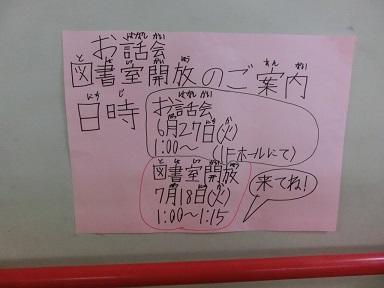 お話会
図書室開放のご案内
日時
お話会
6月27日(火)
1:00〜 (1Fホールにて)
図書室開放
7月18日(火)
1:00〜1:15
来てね!